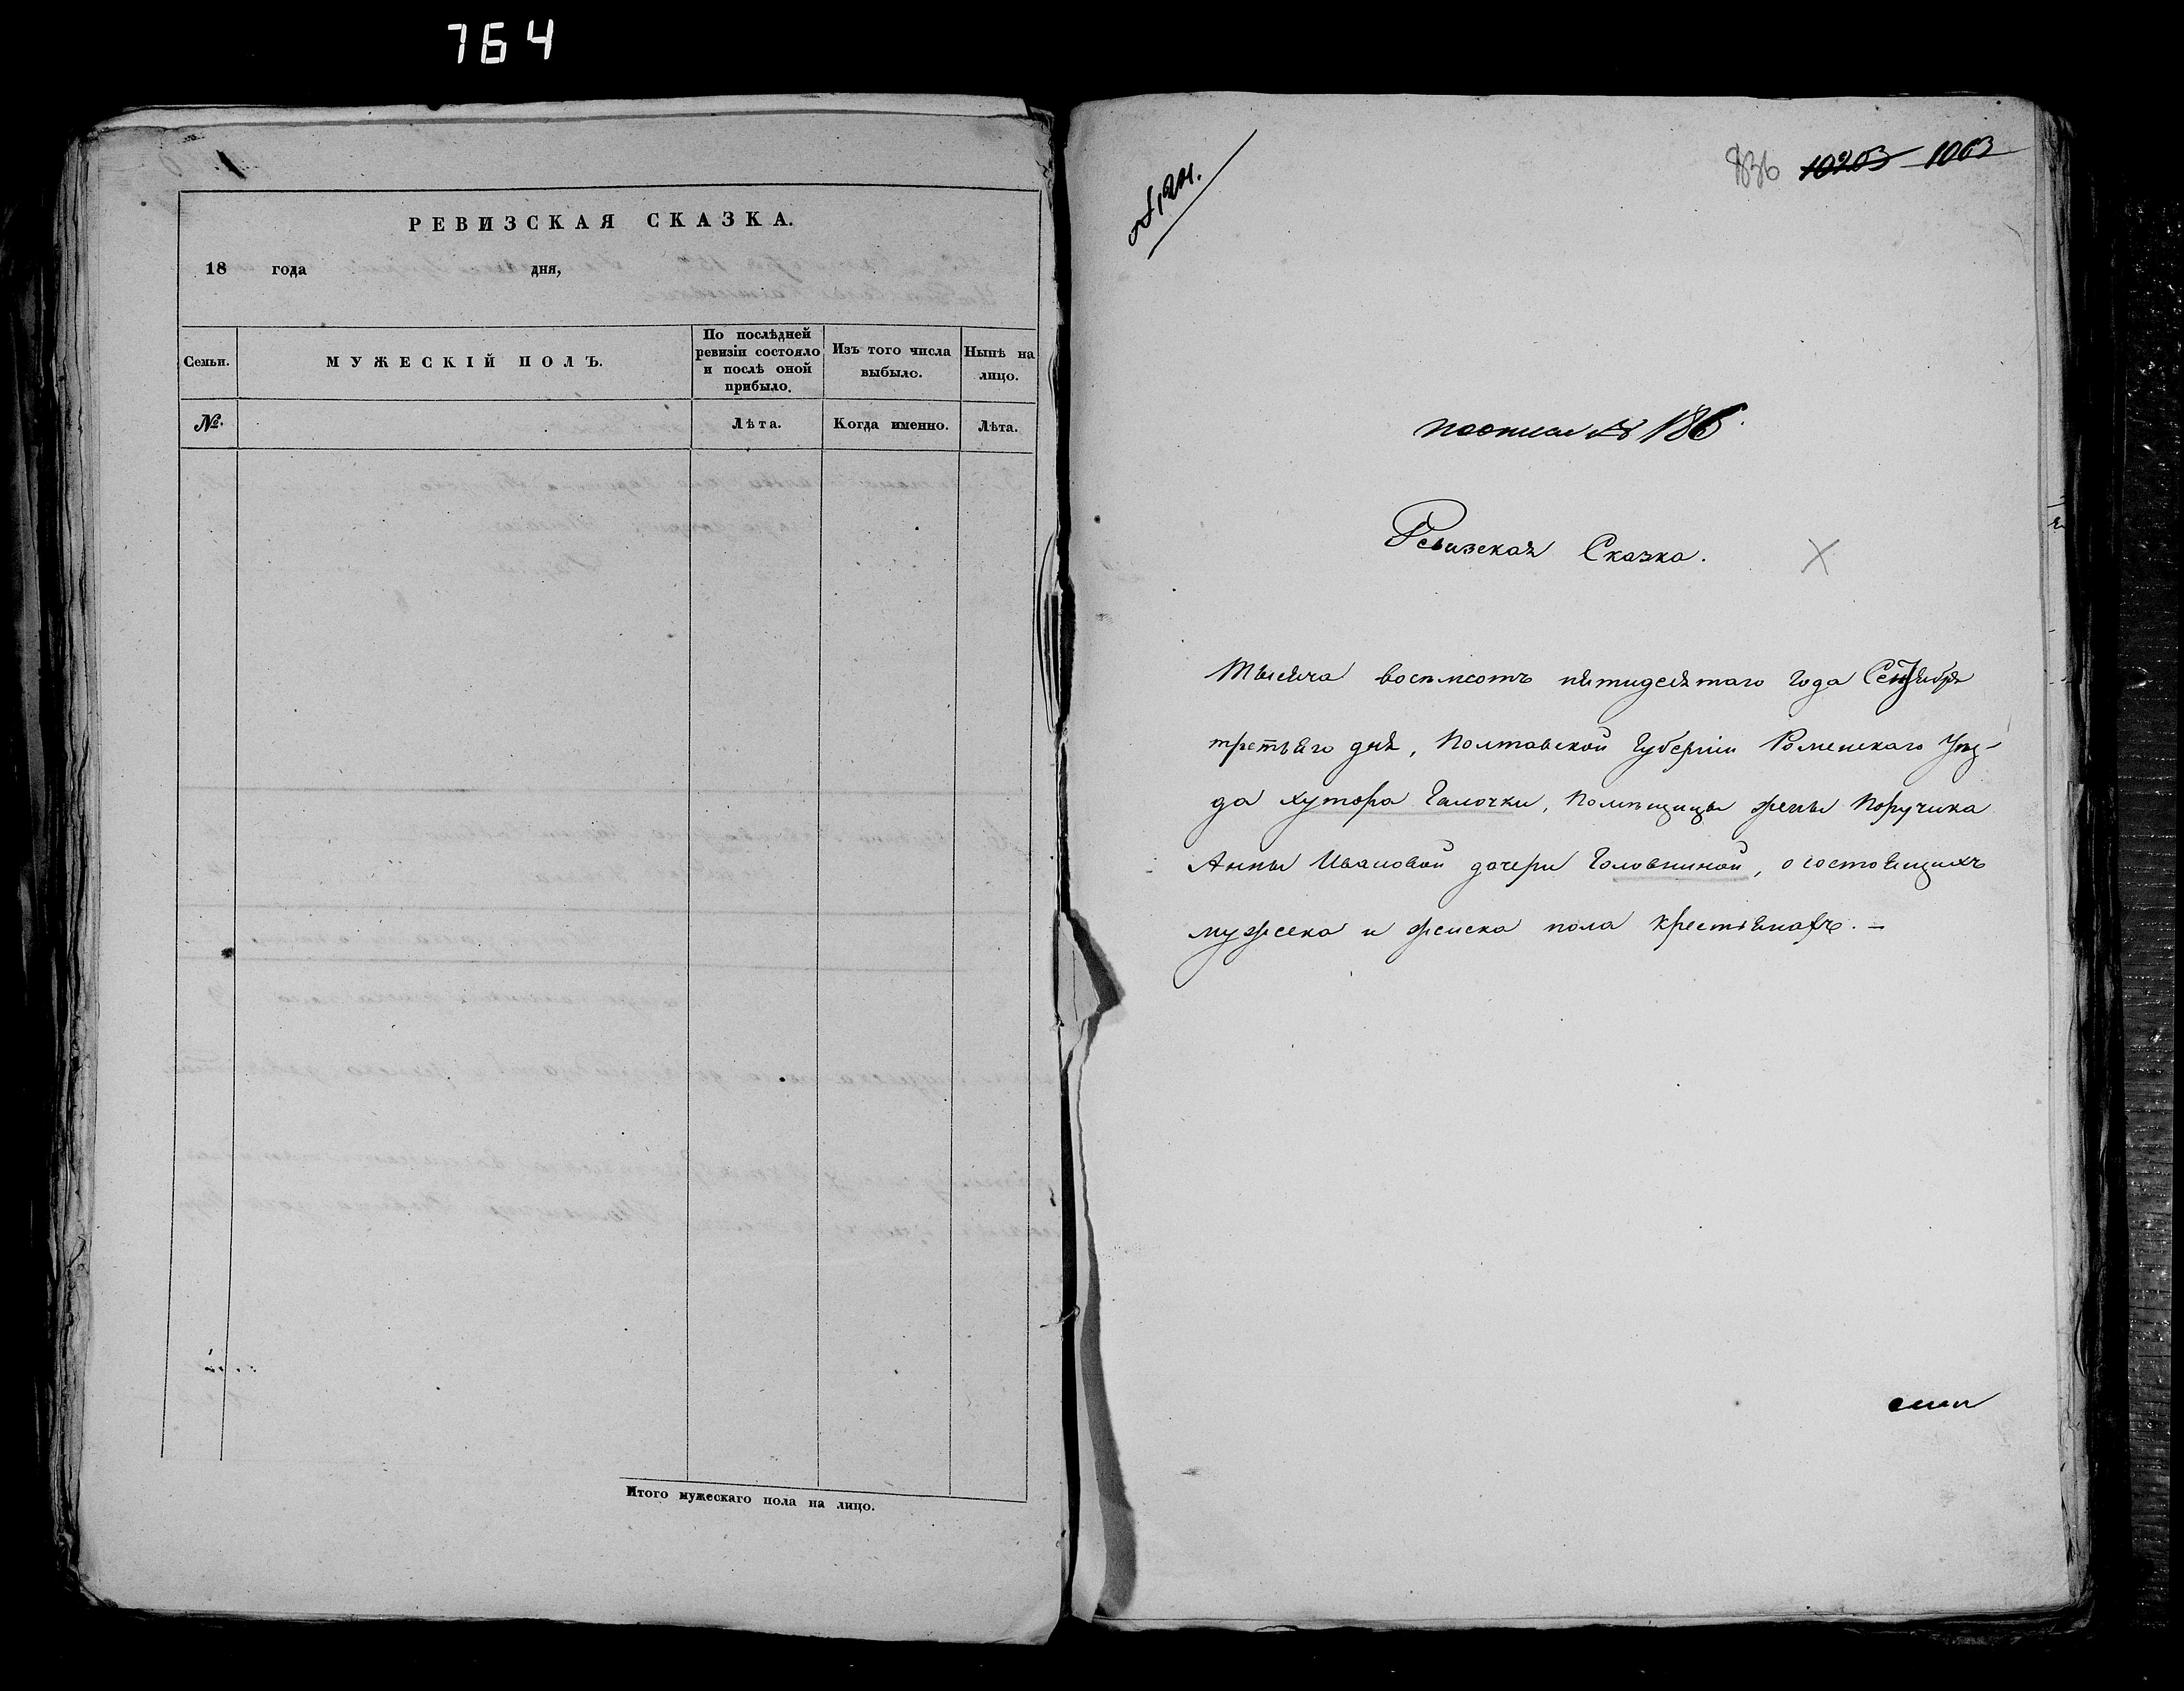 764
РЕВИЗСКАЯ СКАЗКА.
18 года дня,
Семьи.
МУЖЕСКІЙ ПОЛЪ.
По послѣдней
ревизіи состояло
и послѣ оной
прибыло.
Изъ того числа
выбыло.
Нынѣ на
лицо.
№.
Лѣта.
Когда именно.
Лѣта.
Итого мужескаго пола на лицо.
836 1063
186
Ревизская Сказка.
Тысяча восемсотъ пятидесятаго года Сентября
третьяго дня, Полтавской Губерніи Роменскаго Уѣз-
да хутора Галочки, Помѣщицы жены Поручика
Анны Ивановой дочери Головниной, о состоящихъ
мужеска и женска пола крестьянахъ. —